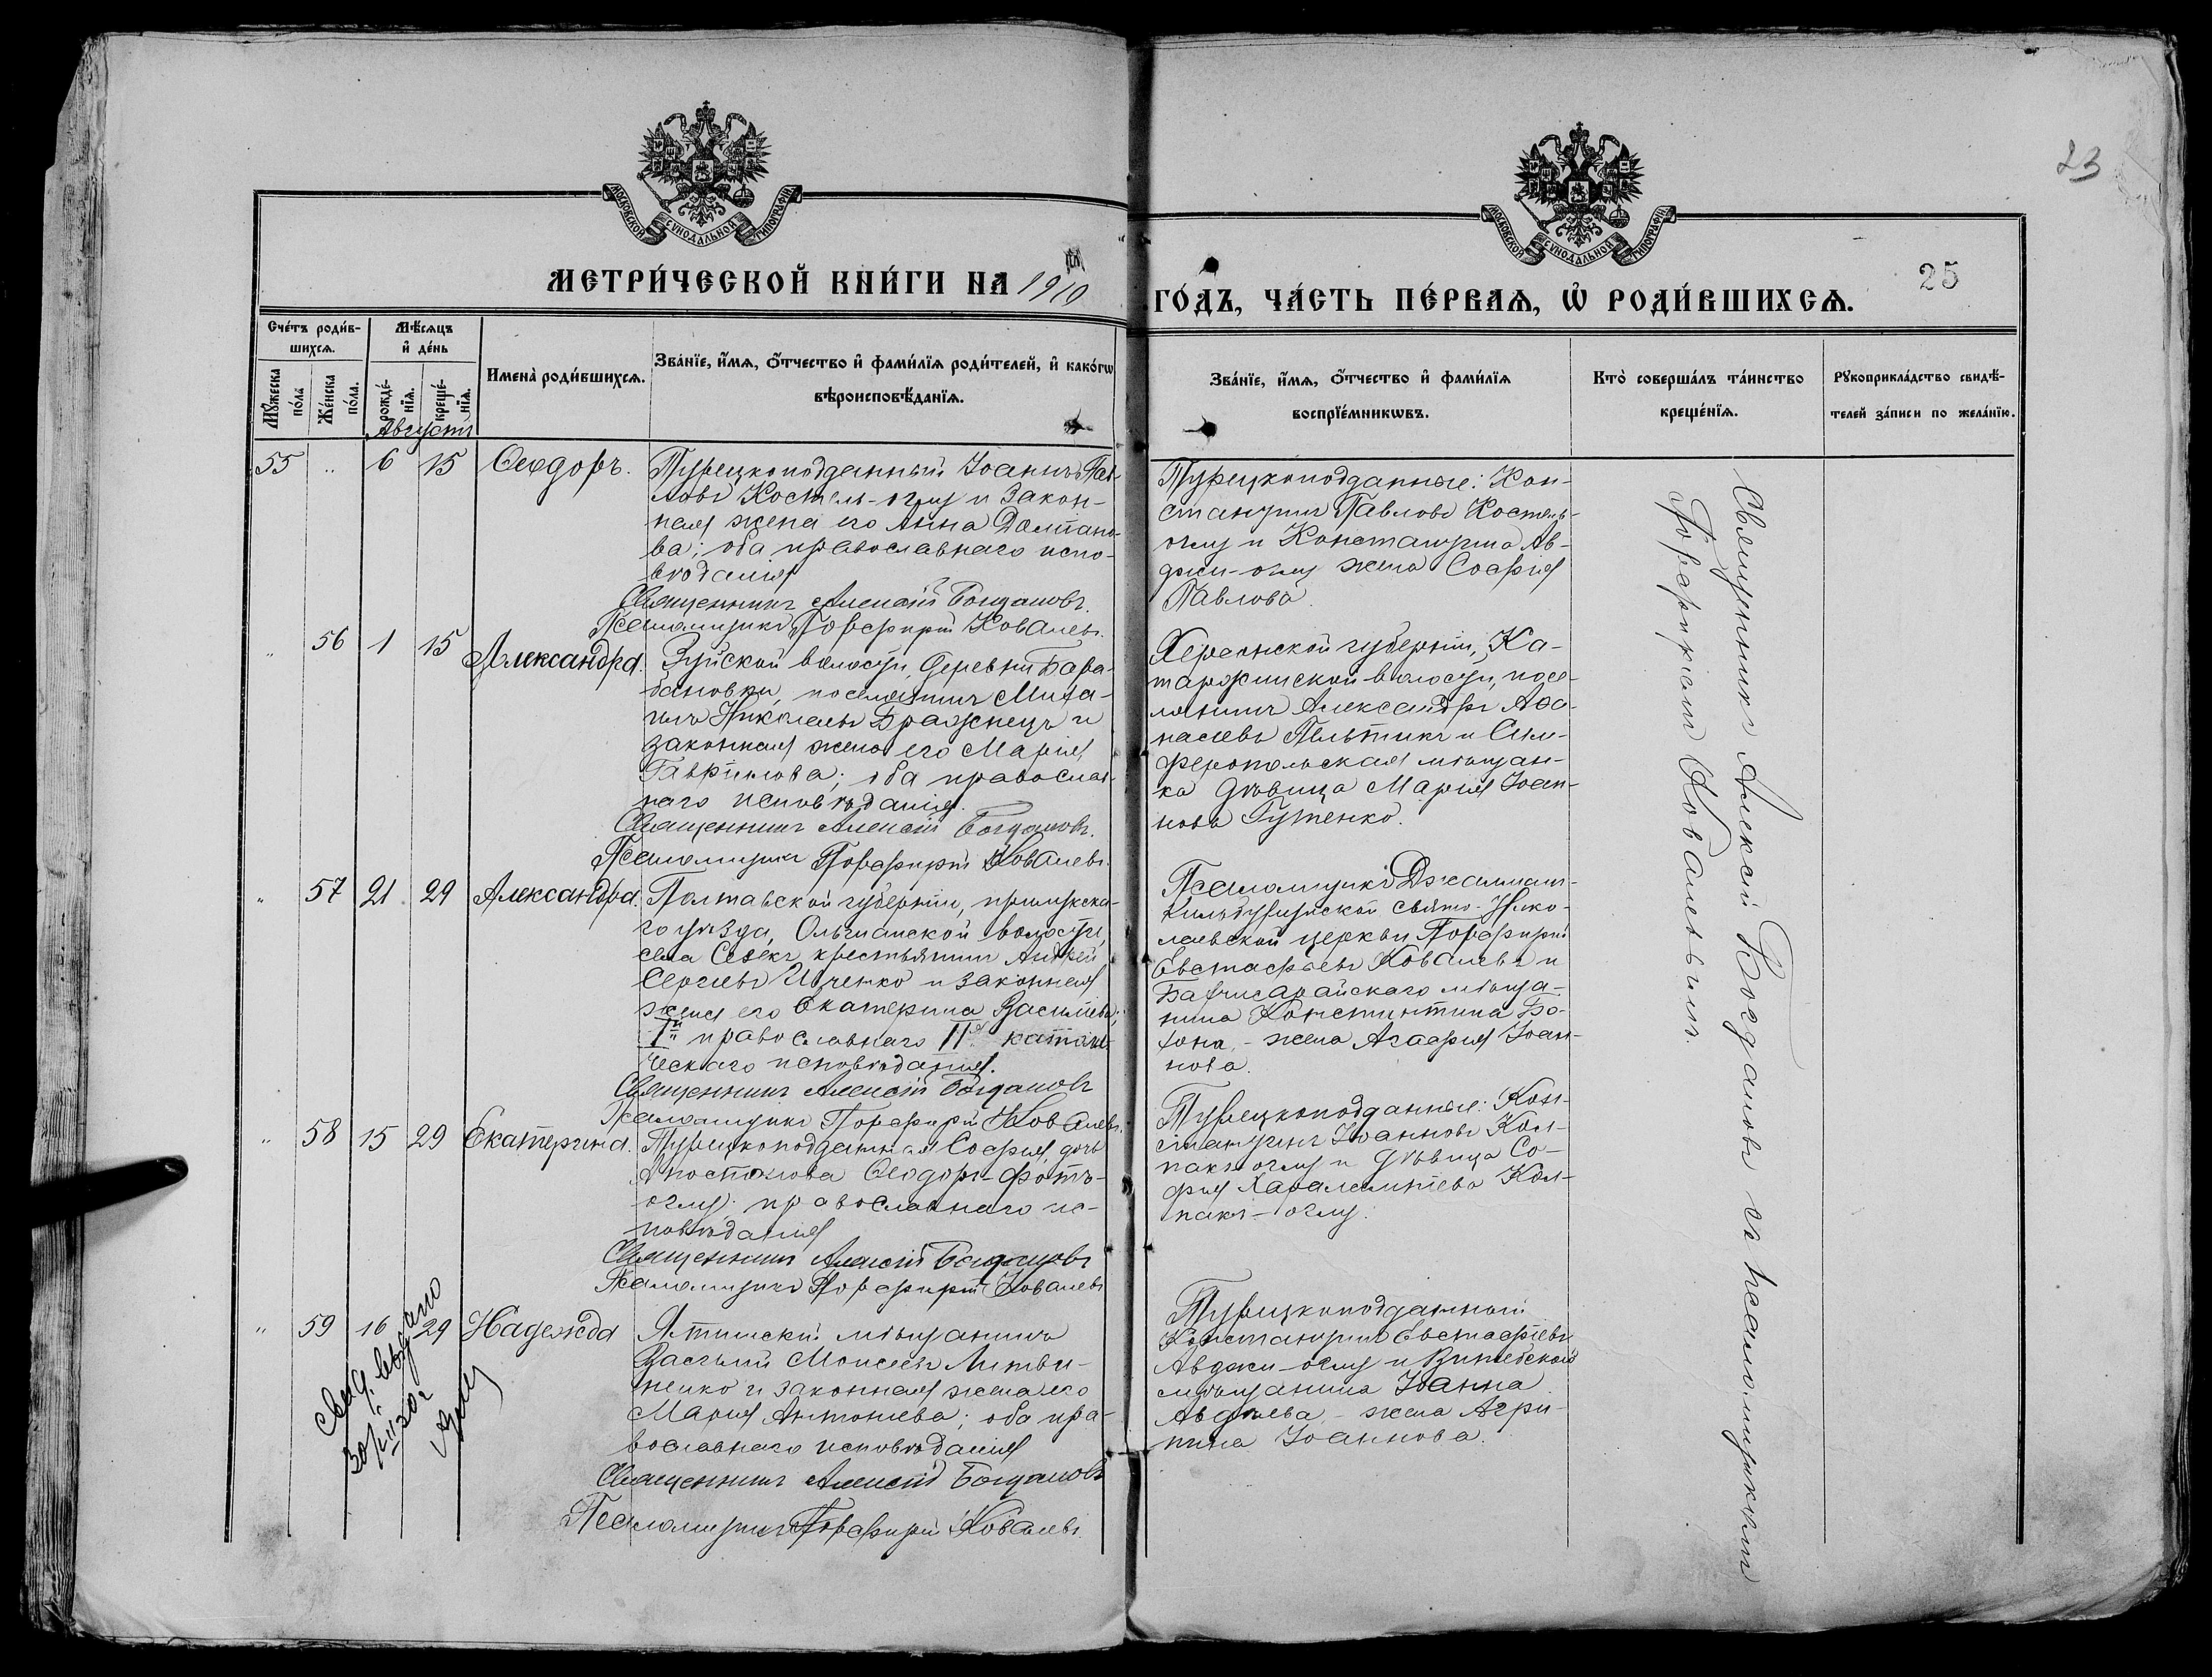 23
25
МОСКОВСКОЙ СѴНОДАЛЬНОЙ ТИПОГРАФІИ
МОСКОВСКОЙ СѴНОДАЛЬНОЙ ТИПОГРАФІИ
МЕТРИ́ЧЕСКОЙ КНИ́ГИ НА 1910
ГО́ДЪ, ЧА́СТЬ ПЕ́РВАѦ, Ѡ҆ РОДИ́ВШИХСѦ.
Сче́тъ роди́в-
шихсѧ.
Мꙋ́жеска по́ла
Же́нска по́ла.
Мѣ́сѧцъ
и҆ де́нь
рожде́-нїѧ.
креще́-нїѧ.
Августъ
Имена̀ роди́вшихсѧ.
Зва́нїе, и҆́мѧ, ѻ҆́тчество и҆ фами́лїѧ роди́телей, и҆ како́гѡ
вѣроисповѣ́данїѧ.
Зва́нїе, и҆́мѧ, ѻ҆́тчество и҆ фами́лїѧ
воспрїе́мникѡвъ.
Кто̀ соверша́лъ та́инство
креще́нїѧ.
Рꙋкоприкла́дство свидѣ́-
телей за́писи по жела́нїю.
55 " 6 15 Ѳеодоръ.
Турецкоподданный Іоаннъ Пав-
ловъ Костель-оглу и закон-
ная жена его Анна
ва; оба православнаго испо-
вѣданія
Священникъ Алексій Богдановъ.
Псаломщикъ Порфирій Ковалевъ.
Турецкоподданные: Кон-
стантинъ Павловъ Костель-
оглу и Константина Ав-
джи-оглу жена Софія
Павлова.
" 56 1 15 Александра.
Зуйской волости, деревни Бара-
бановки, поселянинъ Миха-
илъ Николаевъ Бражнецъ и
законная жена его Марія
Гавриилова; оба православ-
наго исповѣданія.
Священникъ Алексій Богдановъ.
Псаломщикъ Порфирій Ковалевъ.
Херсонской губерніи, Ка-
таржинской волости, посе-
лянинъ Александръ Аѳа-
насіевъ и Сим-
феропольская мѣщан-
ка дѣвица Марія Іоан-
нова Гутенко.
" 57 21 29 Александра.
Полтавской губерніи, прилукска-
го уѣзда, Ольшанской волости,
села крестьянинъ Андрей
Сергіевъ Ищенко и законная
жена его Екатерина Васильева;
Iй православнаго II католи-
ческаго исповѣданія.
Священникъ Алексій Богдановъ
Псаломщикъ Порфирій Ковалевъ.
Псаломщикъ
Свято-Нико-
лаевской церкви Порфирій
Евстафіевъ Ковалевъ и
Бахчисарайскаго мѣща-
нина Константина
жена Агафія Іоан-
нова.
" 58 15 29 Екатерина.
Турецкоподданная Софія, дочь
Апостолова Ѳеодоръ-
оглу; православнаго ис-
повѣданія
Священникъ Алексій Богдановъ
Псаломщикъ Порфирій Ковалевъ
Турецкоподданные: Кон-
стантинъ Іоанновъ Кол-
пакъ-оглу и дѣвица Со-
фія Харалампіева Кол-
пакъ-оглу.
" 59 16 29 Надежда
Ялтинскій мѣщанинъ
Василій Моисеевъ Литви-
ненко и законная жена его
Марія Антоніева; оба пра-
вославнаго исповѣданія
Священникъ Алексій Богдановъ
Псаломщикъ Порфирій Ковалевъ.
Турецкоподданный
Константинъ Евстафіевъ
Авджи-оглу и Витебскаго
мѣщанина Іоанна
Авдѣева,- жена Агри-
пина Іоаннова.
Свид. выдано
Священникъ Алексій Богдановъ съ псаломщикомъ
Порфиріемъ Ковалевымъ.